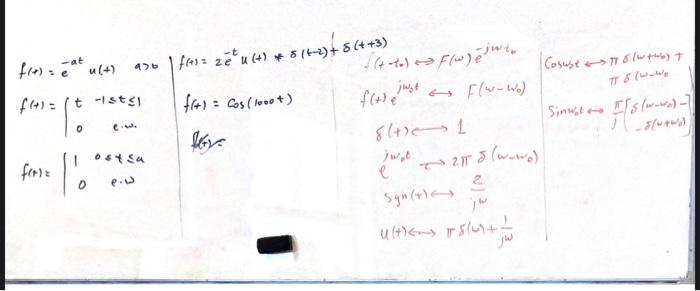 f(t) = e^{-at} u(t)   a>0
f(t) = { t   -1≤t≤1
0   e.w.
f(t) = { 1   0≤t≤a
0   e.w
f(t) = 2e^{-t} u(t) * δ(t-2) + δ(t+3)
f(t) = Cos(1000t)
f(t-t₀) ↔ F(ω) e^{-jωt₀}
f(t) e^{jω₀t} ↔ F(ω-ω₀)
δ(t) ↔ 1
e^{jω₀t} ↔ 2π δ(ω-ω₀)
sgn(t) ↔ 2/jω
u(t) ↔ π δ(ω) + 1/jω
Cosω₀t ↔ π δ(ω+ω₀) +
π δ(ω-ω₀
Sinω₀t ↔ π/j [δ(ω-ω₀) -
- δ(ω+ω₀)]